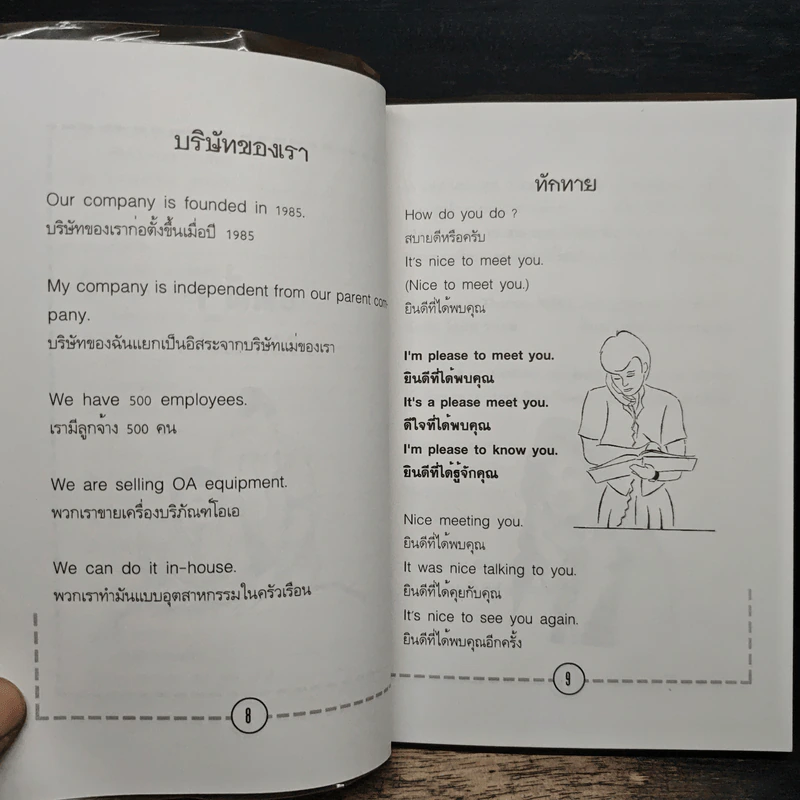 บริษัทของเรา
Our company is founded in 1985.
บริษัทของเราก่อตั้งขึ้นเมื่อปี 1985
My company is independent from our parent com-
pany.
บริษัทของฉันแยกเป็นอิสระจากบริษัทแม่ของเรา
We have 500 employees.
เรามีลูกจ้าง 500 คน
We are selling OA equipment.
พวกเราขายเครื่องบริภัณฑ์โอเอ
We can do it in-house.
พวกเราทำมันแบบอุตสาหกรรมในครัวเรือน
8
ทักทาย
How do you do ?
สบายดีหรือครับ
It's nice to meet you.
(Nice to meet you.)
ยินดีที่ได้พบคุณ
I'm please to meet you.
ยินดีที่ได้พบคุณ
It's a please meet you.
ดีใจที่ได้พบคุณ
I'm please to know you.
ยินดีที่ได้รู้จักคุณ
Nice meeting you.
ยินดีที่ได้พบคุณ
It was nice talking to you.
ยินดีที่ได้คุยกับคุณ
It's nice to see you again.
ยินดีที่ได้พบคุณอีกครั้ง
9